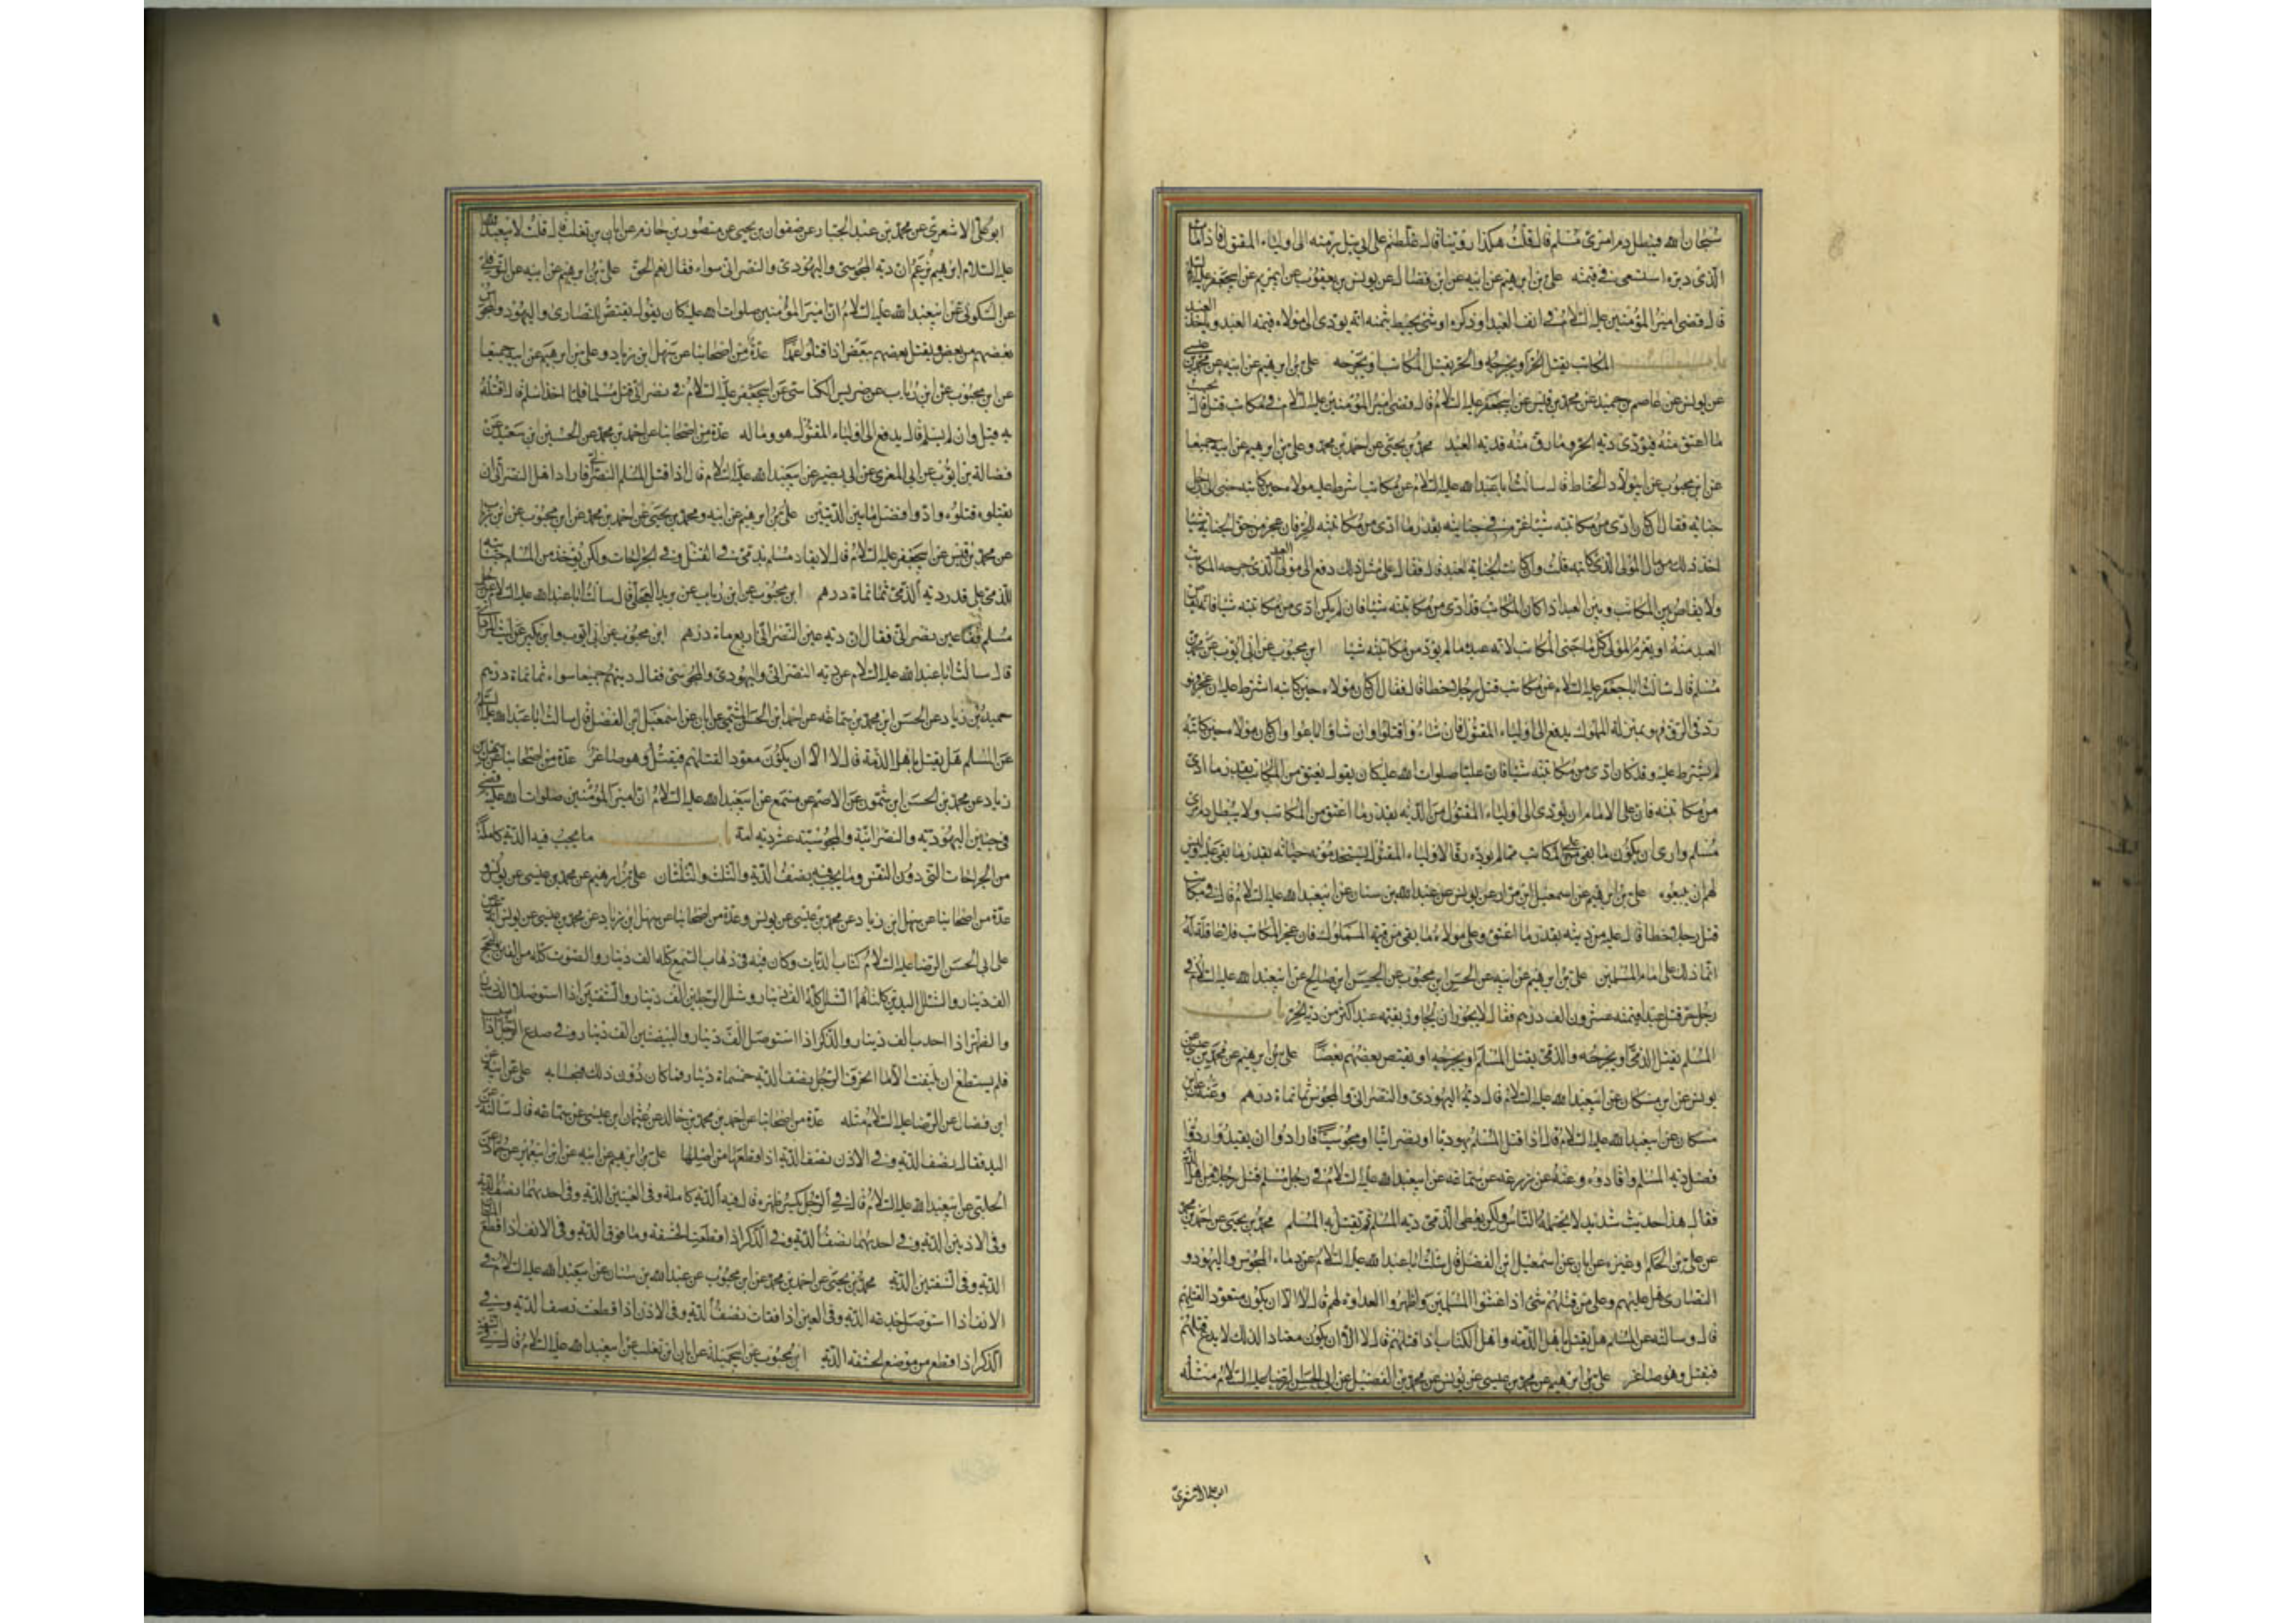 سبحان الله فيبطل دم امرئ مسلم قال قلت هكذا روينا قال غلطتم على ابي بل برمته الى اولياء المقتول فاذا مات
الذي دبره استسعى في قيمته علي بن ابرهيم عن ابيه عن ابن فضال عن يونس بن يعقوب عن ابي مريم عن ابي جعفر عليه السلام
قال قضى امير المؤمنين عليه السلام في انف العبد او ذكره او شئ يحيط بثمنه انه يؤدى الى مولاه قيمة العبد وياخذ العبد
باب المكاتب يقتل الحر او يجرحه والحر يقتل المكاتب او يجرحه علي بن ابرهيم عن ابيه عن محمد بن عيسى
عن يونس عن عاصم بن حميد عن محمد بن قيس عن ابي جعفر عليه السلام قال قضى امير المؤمنين عليه السلام في مكاتب قتل قال يحسب
ما اعتق منه فيؤدى دية الحر وما رق منه فدية العبد محمد بن يحيى عن احمد بن محمد وعلي بن ابرهيم عن ابيه جميعا
عن ابن محبوب عن ابي ولاد الحناط قال سالت ابا عبد الله عليه السلام عن مكاتب اشترط عليه مولاه حين كاتبه جنى الى رجل
جناية فقال ان كان ادى من مكاتبته شيئا غرم في جنايته بقدر ما ادى من مكاتبته للحر فان عجز من حق الجناية شيئا
اخذ ذلك من مال المولى الذي كاتبه قلت وان كانت الجناية لعبد قال فقال على مثل ذلك دفع الى مولى العبد الذي جرحه المكاتب
ولا يقاص بين المكاتب وبين العبد اذا كان المكاتب قد ادى من مكاتبته شيئا فان لم يكن ادى من مكاتبته شيئا فانه يقاص
العبد منه او يغرم المولى كل ما جنى المكاتب لانه عبده ما لم يؤد من مكاتبته شيئا ابن محبوب عن ابي ايوب عن محمد بن
مسلم قال سالت ابا جعفر عليه السلام عن مكاتب قتل رجلا خطا قال فقال ان كان مولاه حين كاتبه اشترط عليه ان عجز فهو
رد في الرق فهو بمنزلة المملوك يدفع الى اولياء المقتول فان شاءوا قتلوا وان شاؤا باعوا وان كان مولاه حين كاتبه
لم يشترط عليه وقد كان ادى من مكاتبته شيئا فان عليا صلوات الله عليه كان يقول يعتق من المكاتب بقدر ما ادى
من مكاتبته فان على الامام ان يؤدى الى اولياء المقتول من الدية بقدر ما اعتق من المكاتب ولا يبطل دم امرئ
مسلم وارى ان يكون ما بقى على المكاتب مما لم يؤده رقا لاولياء المقتول يستخدمونه حياته بقدر ما بقى عليه وليس
لهم ان يبيعوه علي بن ابرهيم عن اسمعيل بن مرار عن يونس عن عبد الله بن سنان عن ابي عبد الله عليه السلام قال في مكاتب
قتل رجلا خطا قال عليه من ديته بقدر ما اعتق وعلى مولاه ما بقى من قيمة المملوك فان عجز المكاتب فلا عاقلة له
انما ذلك على امام المسلمين علي بن ابرهيم عن ابيه عن الحسن بن محبوب عن الحسن بن صالح عن ابي عبد الله عليه السلام في
رجل حر قتل عبدا قيمته عشرون الف درهم فقال لا يجوز ان يجاوز بقيمة عبد اكثر من دية الحر باب
المسلم يقتل الذمي او يجرحه والذمي يقتل المسلم او يجرحه او يقتص بعضهم بعضا علي بن ابرهيم عن محمد بن عيسى عن
يونس عن ابن مسكان عن ابي عبد الله عليه السلام قال دية اليهودي والنصراني والمجوسي ثمانماة درهم وعنه عن ابن
مسكان عن ابي عبد الله عليه السلام قال اذا قتل المسلم يهوديا او نصرانيا او مجوسيا فارادوا ان يقيدوا ردوا
فضل دية المسلم واقادوه وعنه عن زرعة عن سماعة عن ابي عبد الله عليه السلام في رجل مسلم قتل رجلا من اهل الذمة
فقال هذا حديث شديد لا يحتمله الناس ولكن يعطى الذمي دية المسلم ثم يقتل به المسلم محمد بن يحيى عن احمد بن محمد
عن علي بن الحكم وغيره عن ابان عن اسمعيل بن الفضل قال سالت ابا عبد الله عليه السلام عن دماء المجوس واليهود و
النصارى هل عليهم وعلى من قتلهم شئ اذا غشوا المسلمين واظهروا العداوة لهم قال لا الا ان يكون متعودا لقتلهم
قال وسالته عن المسلم هل يقتل باهل الذمة واهل الكتاب اذا قتلهم قال لا الا ان يكون معتادا لذلك لا يدع قتلهم
فيقتل وهو صاغر علي بن ابرهيم عن محمد بن عيسى عن يونس عن محمد بن الفضيل عن ابي الحسن الرضا عليه السلام مثله
ابو علي الاشعري
ابو علي الاشعري عن محمد بن عبد الجبار عن صفوان بن يحيى عن منصور بن حازم عن ابان بن تغلب قال قلت لابي عبد الله
عليه السلام ابرهيم يزعم ان دية المجوسي واليهودي والنصراني سواء فقال نعم الحق علي بن ابرهيم عن ابيه عن النوفلي
عن السكوني عن ابي عبد الله عليه السلام ان امير المؤمنين صلوات الله عليه كان يقول يقتص للنصارى واليهود والمجوس
بعضهم من بعض ويقتل بعضهم ببعض اذا قتلوا عمدا عدة من اصحابنا عن سهل بن زياد وعلي بن ابرهيم عن ابيه جميعا
عن ابن محبوب عن ابن رئاب عن ضريس الكناسي عن ابي جعفر عليه السلام في نصراني قتل مسلما فلما اخذ اسلم قال اقتله
به قيل وان لم يسلم قال يدفع الى اولياء المقتول هو وماله عدة من اصحابنا عن احمد بن محمد عن الحسين بن سعيد عن
فضالة بن ايوب عن ابي المغرى عن ابي بصير عن ابي عبد الله عليه السلام قال اذا قتل المسلم النصراني فاراد اهل النصراني ان
يقتلوه قتلوه وادوا فضل ما بين الديتين علي بن ابرهيم عن ابيه ومحمد بن يحيى عن احمد بن محمد عن ابن محبوب عن ابن رئاب
عن محمد بن قيس عن ابي جعفر عليه السلام قال لا يقاد مسلم بذمي في القتل ولا في الجراحات ولكن يؤخذ من المسلم جنايته
للذمي على قدر دية الذمي ثمانماة درهم ابن محبوب عن ابن رئاب عن بريد العجلي قال سالت ابا عبد الله عليه السلام عن رجل
مسلم فقأ عين نصراني فقال ان دية عين النصراني اربعماة درهم ابن محبوب عن ابي ايوب وابن بكير عن ليث المرادي
قال سالت ابا عبد الله عليه السلام عن دية النصراني واليهودي والمجوسي فقال ديتهم جميعا سواء ثمانماة درهم
حميد بن زياد عن الحسن بن محمد بن سماعة عن احمد بن الحسن الميثمي عن ابان عن اسمعيل بن الفضل قال سالت ابا عبد الله عليه السلام
عن المسلم هل يقتل باهل الذمة قال لا الا ان يكون معودا لقتلهم فيقتل وهو صاغر عدة من اصحابنا عن سهل بن
زياد عن محمد بن الحسن بن شمون عن الاصم عن مسمع عن ابي عبد الله عليه السلام ان امير المؤمنين صلوات الله عليه قضى
في جنين اليهودية والنصرانية والمجوسية عشر دية امه باب ما يجب فيه الدية كاملة
من الجراحات التي دون النفس وما يجب فيه نصف الدية والثلث والثلثان علي بن ابرهيم عن محمد بن عيسى عن يونس و
عدة من اصحابنا عن سهل بن زياد عن محمد بن عيسى عن يونس وعدة من اصحابنا عن سهل بن زياد عن محمد بن عيسى عن يونس انه عرض
على ابي الحسن الرضا عليه السلام كتاب الديات وكان فيه في ذهاب السمع كله الف دينار والصوت كله من الغنن والبحح
الف دينار والشلل اليدين كلتاهما الشلل كله الف دينار وشلل الرجلين الف دينار والشفتين اذا استوصلا الف دينار
والظهر اذا احدب الف دينار والذكر اذا استوصل الف دينار والبيضتين الف دينار وفي صدع الرجل اذا اصيب
فلم يستطع ان يلتفت الا ما انحرف الرجل نصف الدية خمسماة دينار فما كان دون ذلك فبحسابه علي عن ابيه عن
ابن فضال عن الرضا عليه السلام مثله عدة من اصحابنا عن احمد بن محمد بن خالد عن عثمان بن عيسى عن سماعة قال سالته عن
اليد فقال نصف الدية وفي الاذن نصف الدية اذا قطعها من اصلها علي بن ابرهيم عن ابيه عن ابن ابي عمير عن حماد عن
الحلبي عن ابي عبد الله عليه السلام قال في الرجل يكسر ظهره قال فيه الدية كاملة وفي العينين الدية وفي احديهما نصف الدية
وفي الاذنين الدية وفي احديهما نصف الدية وفي الذكر اذا قطعت الحشفة وما فوق الدية وفي الانف اذا قطع المارن
الدية وفي الشفتين الدية محمد بن يحيى عن احمد بن محمد عن ابن محبوب عن عبد الله بن سنان عن ابي عبد الله عليه السلام في
الانف اذا استوصل جدعه الدية وفي العين اذا فقات نصف الدية وفي الاذن اذا قطعت نصف الدية وفي
الذكر اذا قطع من موضع الحشفة الدية ابن محبوب عن ابي جميلة عن ابان بن تغلب عن ابي عبد الله عليه السلام قال في الشفة